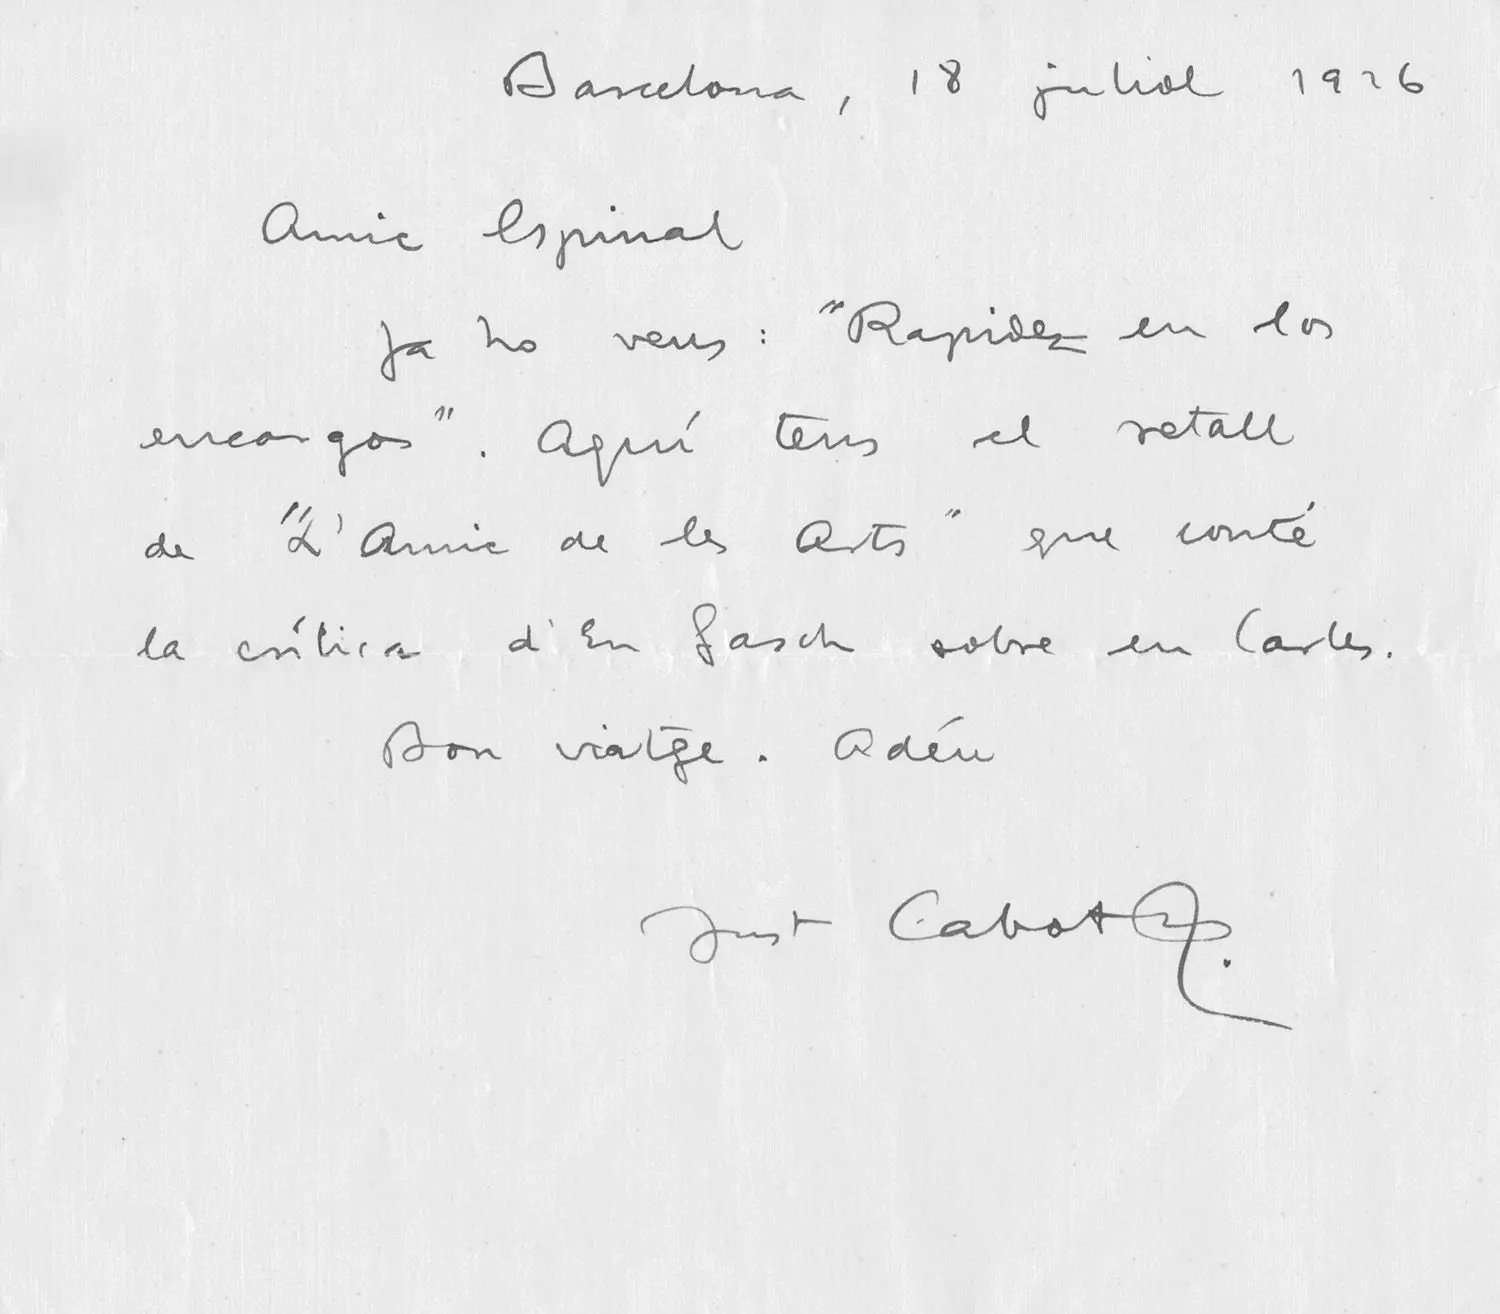 Barcelona, 18 juliol 1926
Amic Espinal
Ja ho veus: "Rapidez en los
encargos". Aquí tens el retall
de "L'Amic de les Arts" que conté
la crítica d'En Gasch sobre en Carles.
Bon viatge. Adéu
Just Cabot